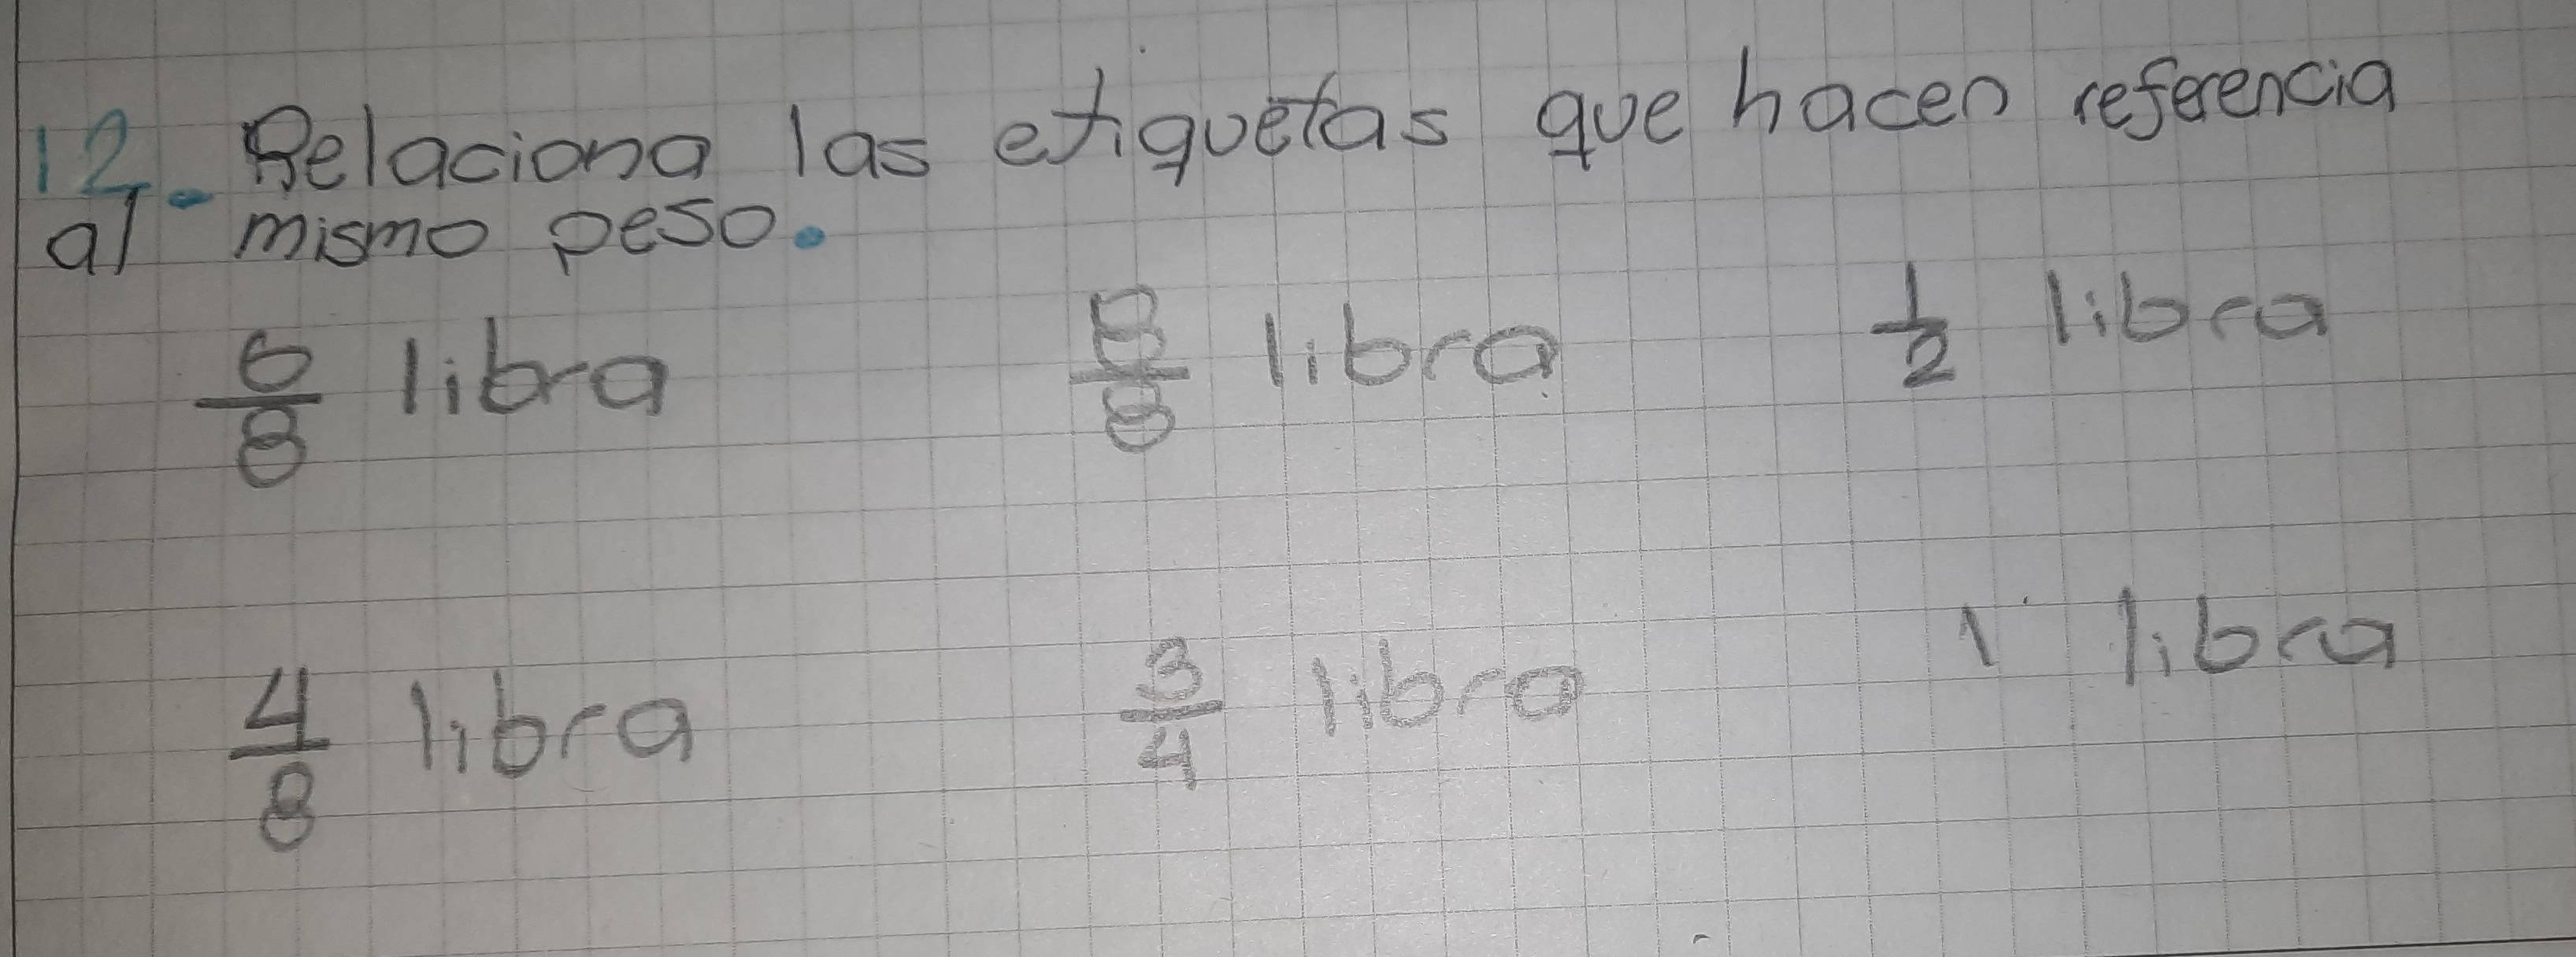 12. Relaciona las etiquetas que hacen referencia
al mismo peso.
6/8 libra 8/8 libra 1/2 libra
4/8 libra 3/4 libra 1 libra